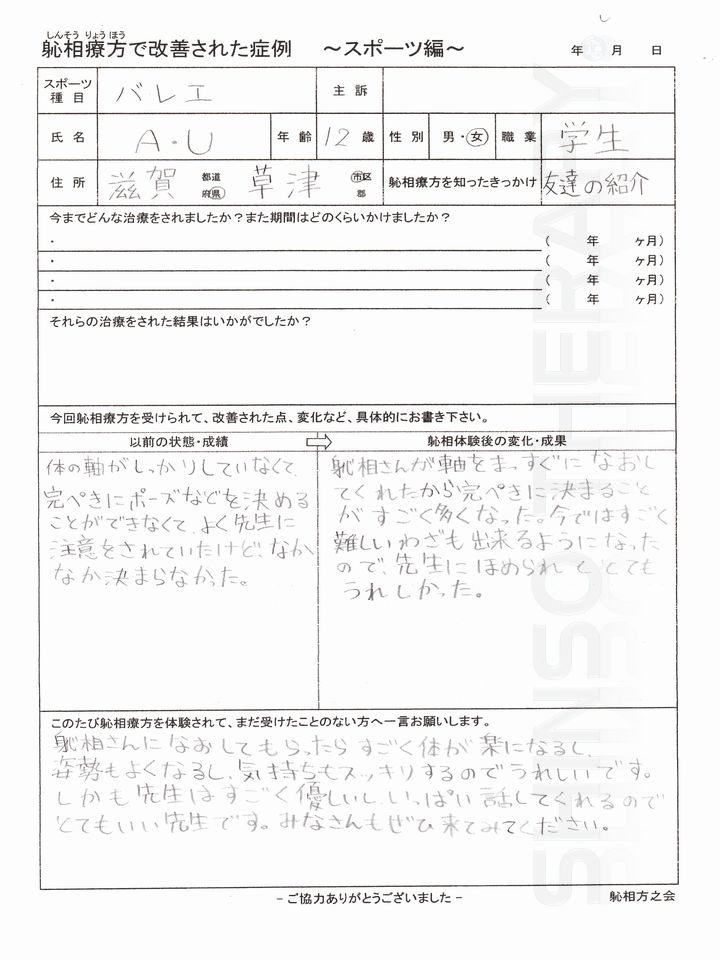 しんそう りょうほう
躰相療方で改善された症例 ～スポーツ編～ 年 月 日
スポーツ種目 バレエ 主訴
氏名 A・U 年齢 12歳 性別 男・女 職業 学生
住所 滋賀 都道府県 草津 市区郡 躰相療方を知ったきっかけ 友達の紹介
今までどんな治療をされましたか？また期間はどのくらいかけましたか？
・ ( 年 ヶ月)
・ ( 年 ヶ月)
・ ( 年 ヶ月)
・ ( 年 ヶ月)
それらの治療をされた結果はいかがでしたか？
今回躰相療方を受けられて、改善された点、変化など、具体的にお書き下さい。
以前の状態・成績 ⇨ 躰相体験後の変化・成果
体の軸がしっかりしていなくて、
完ぺきにポーズなどを決める
ことができなくて、よく先生に
注意をされていたけど、なか
なか決まらなかった。
躰相さんが軸をまっすぐになおし
てくれたから完ぺきに決まること
がすごく多くなった。今ではすごく
難しいわざも出来るようになった
ので、先生にほめられてとても
うれしかった。
このたび躰相療方を体験されて、まだ受けたことのない方へ一言お願いします。
躰相さんになおしてもらったらすごく体が楽になるし、
姿勢もよくなるし、気持ちもスッキリするのでうれしいです。
しかも先生はすごく優しいし、いっぱい話してくれるので
とてもいい先生です。みなさんもぜひ来てみてください。
-ご協力ありがとうございました-
躰相方之会
SHINSO THERAPY